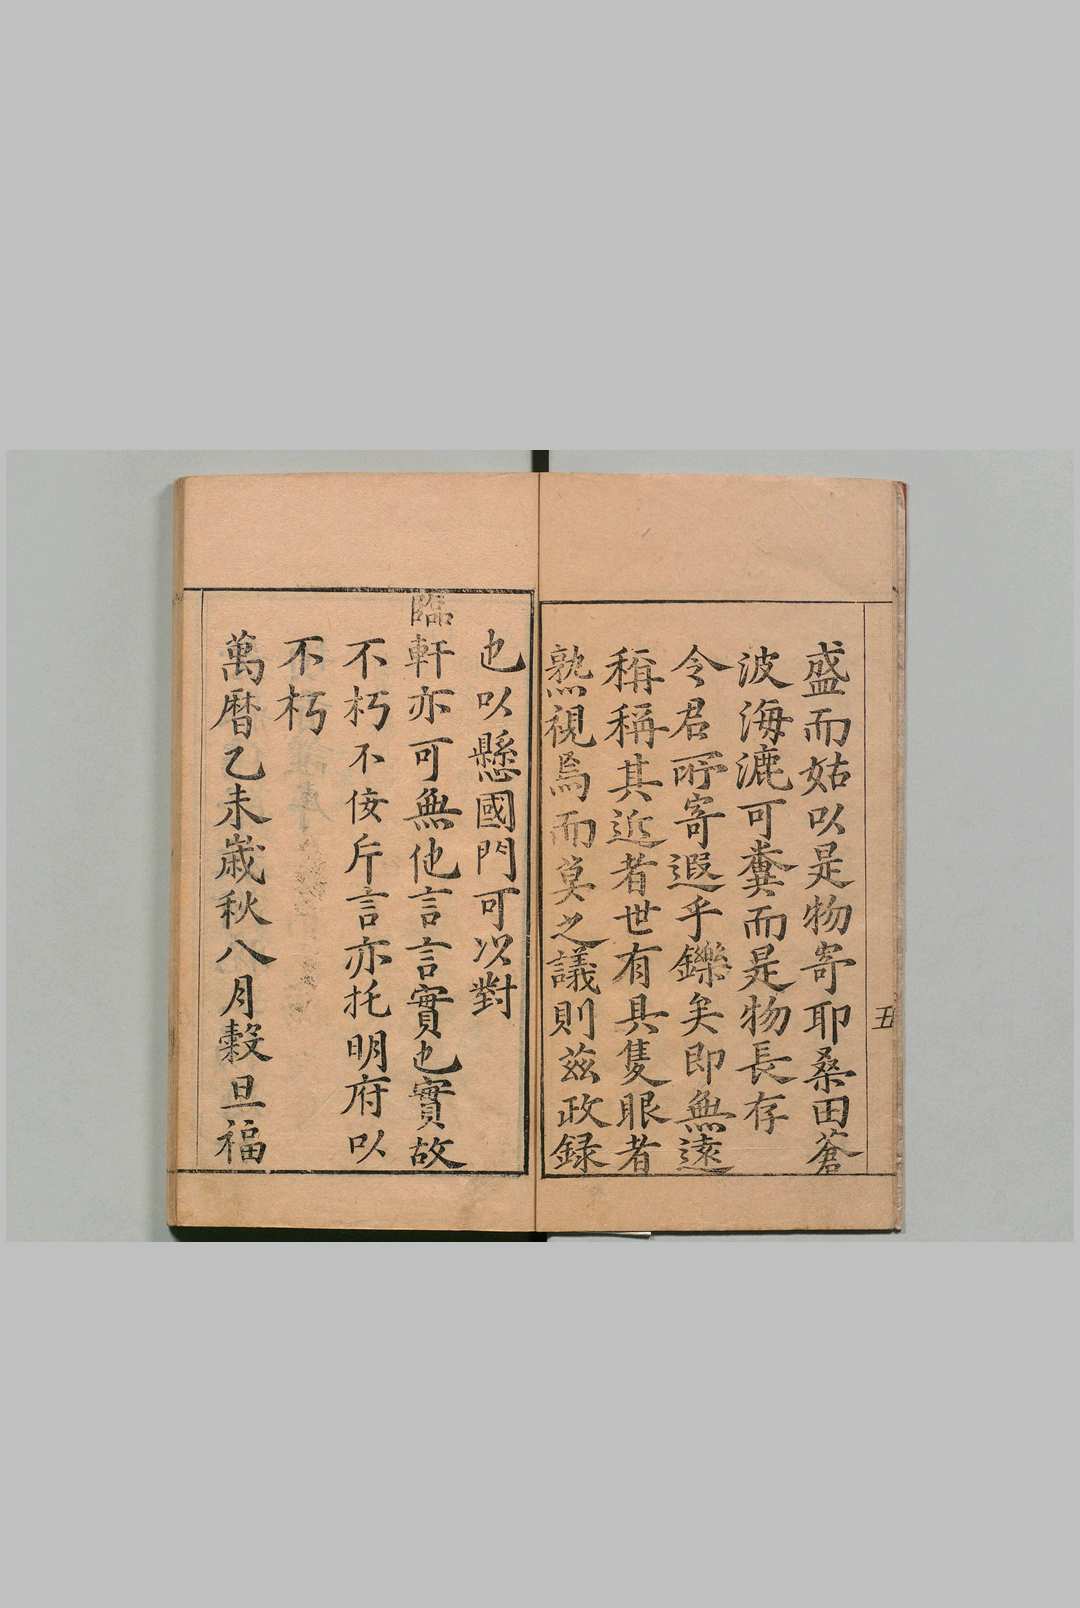 盛而姑以是物寄耶桑田蒼
波海漉可糞而是物長存
令君所寄遐乎鑠矣即無遠
稱稱其近者世有具隻眼者
熟視焉而莫之議則茲政録
也以懸國門可以對
臨軒亦可無他言言實也實故
不朽不佞斤言亦托明府以
不朽
萬曆乙未歲秋八月穀旦福
五